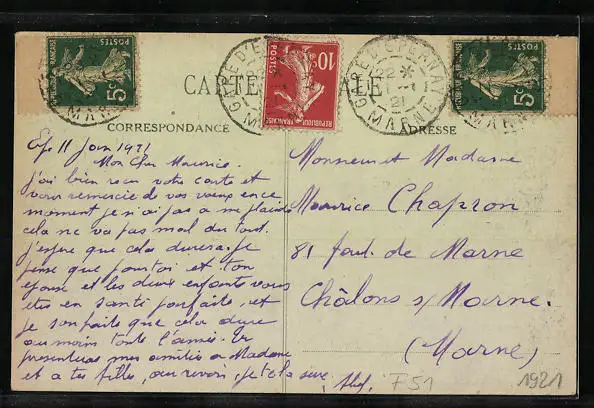 POSTES
5c
POSTES
10c
REPUBLIQUE FRANÇAISE
GARE D'EPERNAY
22 *
21
MARNE
5c
CARTE POSTALE
CORRESPONDANCE
ADRESSE
Ep 11 Janv 1921
Mon Cher Maurice.
j'ai bien reçu votre carte et
vous remercie de vos vœux en ce
moment je n'ai pas a me plaindre
cela ne va pas mal du tout.
j'espère que cela durera. Je
pense que pour toi et ton
épouse et les deux enfants vous
êtes en santé parfaite, et
je souhaite que cela dure
au moins toute l'année. Tu
presenteras mes amitiés a Madame
et a tes filles, au revoir, je te la serre
Monsieur et Madame
Maurice Chapron
81 faub. de Marne
Châlons s/Marne.
(Marne)
F51
1921